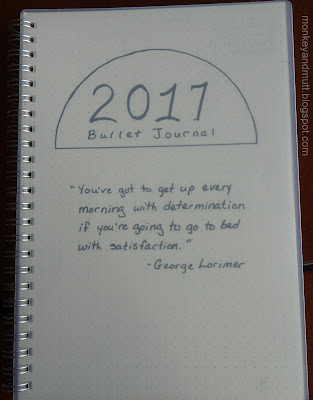 2017
Bullet Journal
"You've got to get up every
morning with determination
if you're going to go to bed
with satisfaction."
-George Lorimer
monkeyandmutt.blogspot.com